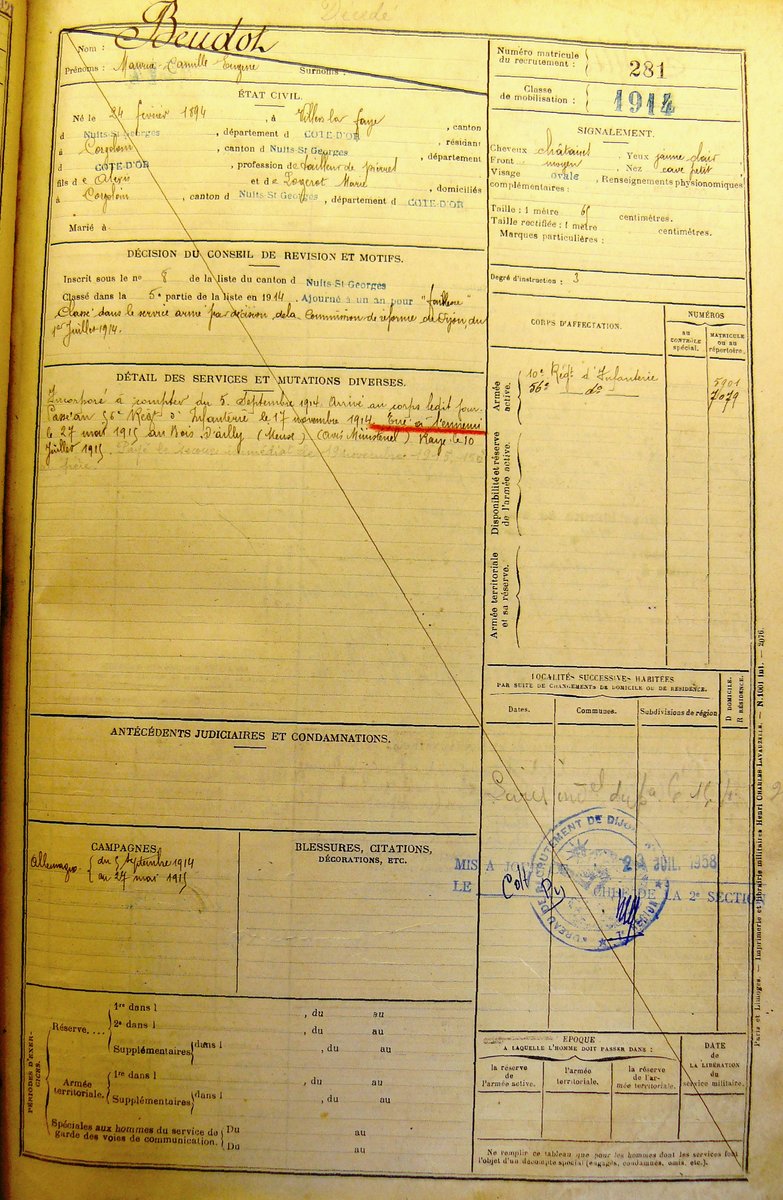 Décédé
Nom : Beudot
Prénoms : Maurice Camille Eugène Surnoms :
ÉTAT CIVIL.
Né le 24 février 1894, à Villers la faye, canton
d Nuits-St-Georges, département d COTE-D'OR, résidant
à Corgoloin, canton d Nuits-St-Georges, département
d COTE-D'OR, profession de tailleur de pierres
fils d e Alexis et de Logerot Marie, domiciliés
à Corgoloin, canton d Nuits-St-Georges, département d COTE-D'OR
Marié à
DÉCISION DU CONSEIL DE REVISION ET MOTIFS.
Inscrit sous le no 8 de la liste du canton d Nuits-St-Georges
Classé dans la 5e partie de la liste en 1914. Ajourné à un an pour "faiblesse"
Classé dans le service armé par décision de la Commission de réforme de Dijon du
1er Juillet 1914.
DÉTAIL DES SERVICES ET MUTATIONS DIVERSES.
Incorporé à compter du 5 Septembre 1914. Arrivé au corps le dit jour.
Passé au 56e Régt d'Infanterie le 17 novembre 1914. Tué à l'ennemi
le 27 mai 1915 au Bois d'ailly (Meuse) (Avis Ministériel). Rayé le 10
Juillet 1915. Payé le secours immédiat de 19 novembre 1915 150
père
ANTÉCÉDENTS JUDICIAIRES ET CONDAMNATIONS.
CAMPAGNES.
Allemagne { du 5 septembre 1914
{ au 27 mai 1915
BLESSURES, CITATIONS,
DÉCORATIONS, ETC.
PÉRIODES D'EXERCICES.
Réserve....
1re dans l , du au
2e dans l , du au
Supplémentaires dans l , du au
Armée territoriale.
1re dans l , du au
Supplémentaires dans l , du au
Spéciales aux hommes du service de garde des voies de communication.
Du au
Du au
Numéro matricule
du recrutement : 281
Classe
de mobilisation : 1914
SIGNALEMENT.
Cheveux châtains Yeux jaune clair
Front moyen Nez cave petit
Visage ovale Renseignements physionomiques
complémentaires :
Taille : 1 mètre 65 centimètres.
Taille rectifiée : 1 mètre centimètres.
Marques particulières :
Degré d'instruction : 3
CORPS D'AFFECTATION.
NUMÉROS
au CONTRÔLE spécial.
MATRICULE ou au répertoire.
Armée active.
10e Régt d'Infanterie 5901
56e do 7079
Disponibilité et réserve de l'armée active.
Armée territoriale et sa réserve.
LOCALITÉS SUCCESSIVES HABITÉES
PAR SUITE DE CHANGEMENTS DE DOMICILE OU DE RÉSIDENCE.
Dates. Communes. Subdivisions de région
D DOMICILE.
R RÉSIDENCE.
MIS A JOUR
LE 24 JUIL 1938
CHEF DE LA 2e SECTION
BUREAU DE RECRUTEMENT DE DIJON
EPOQUE
A LAQUELLE L'HOMME DOIT PASSER DANS :
la réserve de l'armée active.
l'armée territoriale.
la réserve de l'armée territoriale.
DATE de LA LIBÉRATION du service militaire.
Ne remplir ce tableau que pour les hommes dont les services font
l'objet d'un décompte spécial (engagés, condamnés, omis, etc.).
Paris et Limoges. — Imprimerie et librairie militaires Henri CHARLES-LAVAUZELLE. — N. 1001 int. — 2076.